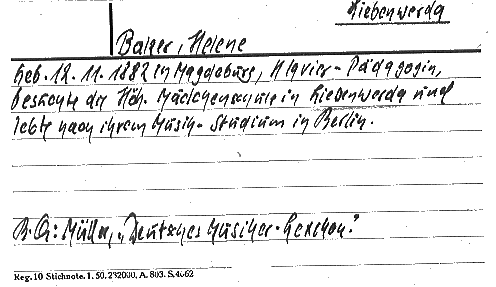 Liebenwerda
Balzer, Helene
Geb. 12. 11. 1882 in Magdeburg, Klavier-Pädagogin,
besuchte die Höh. Mädchenschule in Liebenwerda und
lebte nach ihrem Musik-Studium in Berlin.
B. Q: Müller, „Deutsches Musiker-Lexikon."
Reg. 10 Stichnote. I. 50. 232000. A. 803. S. 4662